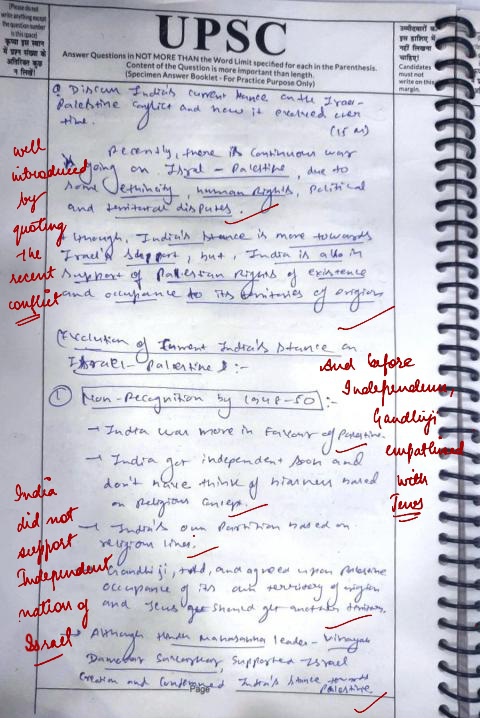 (Please do not write anything except the question number in this space)
कृपया इस स्थान में प्रश्न संख्या के अतिरिक्त कुछ न लिखें।
UPSC
Answer Questions in NOT MORE than the Word Limit specified for each in the Parenthesis.
Content of the Question is more important than length.
(Specimen Answer Booklet - For Practice Purpose Only)
उम्मीदवारों को इस हाशिए में नहीं लिखना चाहिए।
Candidates must not write on this margin.
Q. Discuss India's current stance on the Israel-
Palestine conflict and how it evolved over
time.
(15 M)
Recently, there is continuous war
going on Israel - Palestine, due to
some ethinicity human Rights, Political
and territorial disputes.
well introduced by quoting the recent conflict
though, India's stance is more towards
Israel's support, but, India is also in
support of Palestian Rights of existence
and occupance to its territories of origion
Evolution of current India's stance on
Israel - Palestine :-
And before Independence, Gandhiji empathised with Jews
① Non-Recognition by 1948-50 :-
→ India was more in favour of Palestine.
→ India got independent soon and
don't have think of biasness based
on Religious concept.
→ India's own Partition based on
religious lines.
India did not support Independent nation of Israel
Gandhiji, told, and agreed upon Palestine
occupance of its own territory of origion
and Jews should get another
Although Hindu Mahasabha leader - Vinayak
Damodar Savarkar, supported Israel
Creation and condemned India's stance towards
Palestine
Page